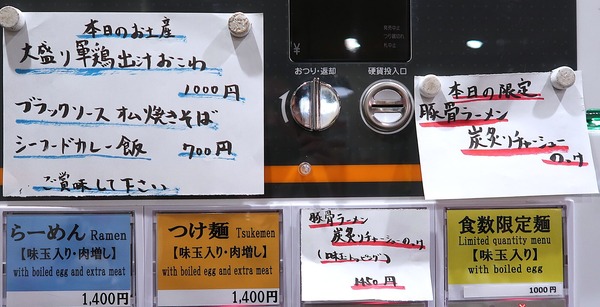 本日のお土産
大盛り軍鶏出汁おこわ
1000円
ブラックソース オム焼きそば
シーフードカレー飯 700円
ご賞味して下さい
¥
おつり・返却
硬貨投入口
本日の限定
豚骨ラーメン
炭炙りチャーシュー
のっけ
らーめん Ramen
【味玉入り・肉増し】
with boiled egg and extra meat
1,400円
つけ麺 Tsukemen
【味玉入り・肉増し】
with boiled egg and extra meat
1,400円
豚骨ラーメン
炭炙りチャーシューのっけ
(味玉トッピング)
1450円
食数限定麺
Limited quantity menu
【味玉入り】
with boiled egg
1000円